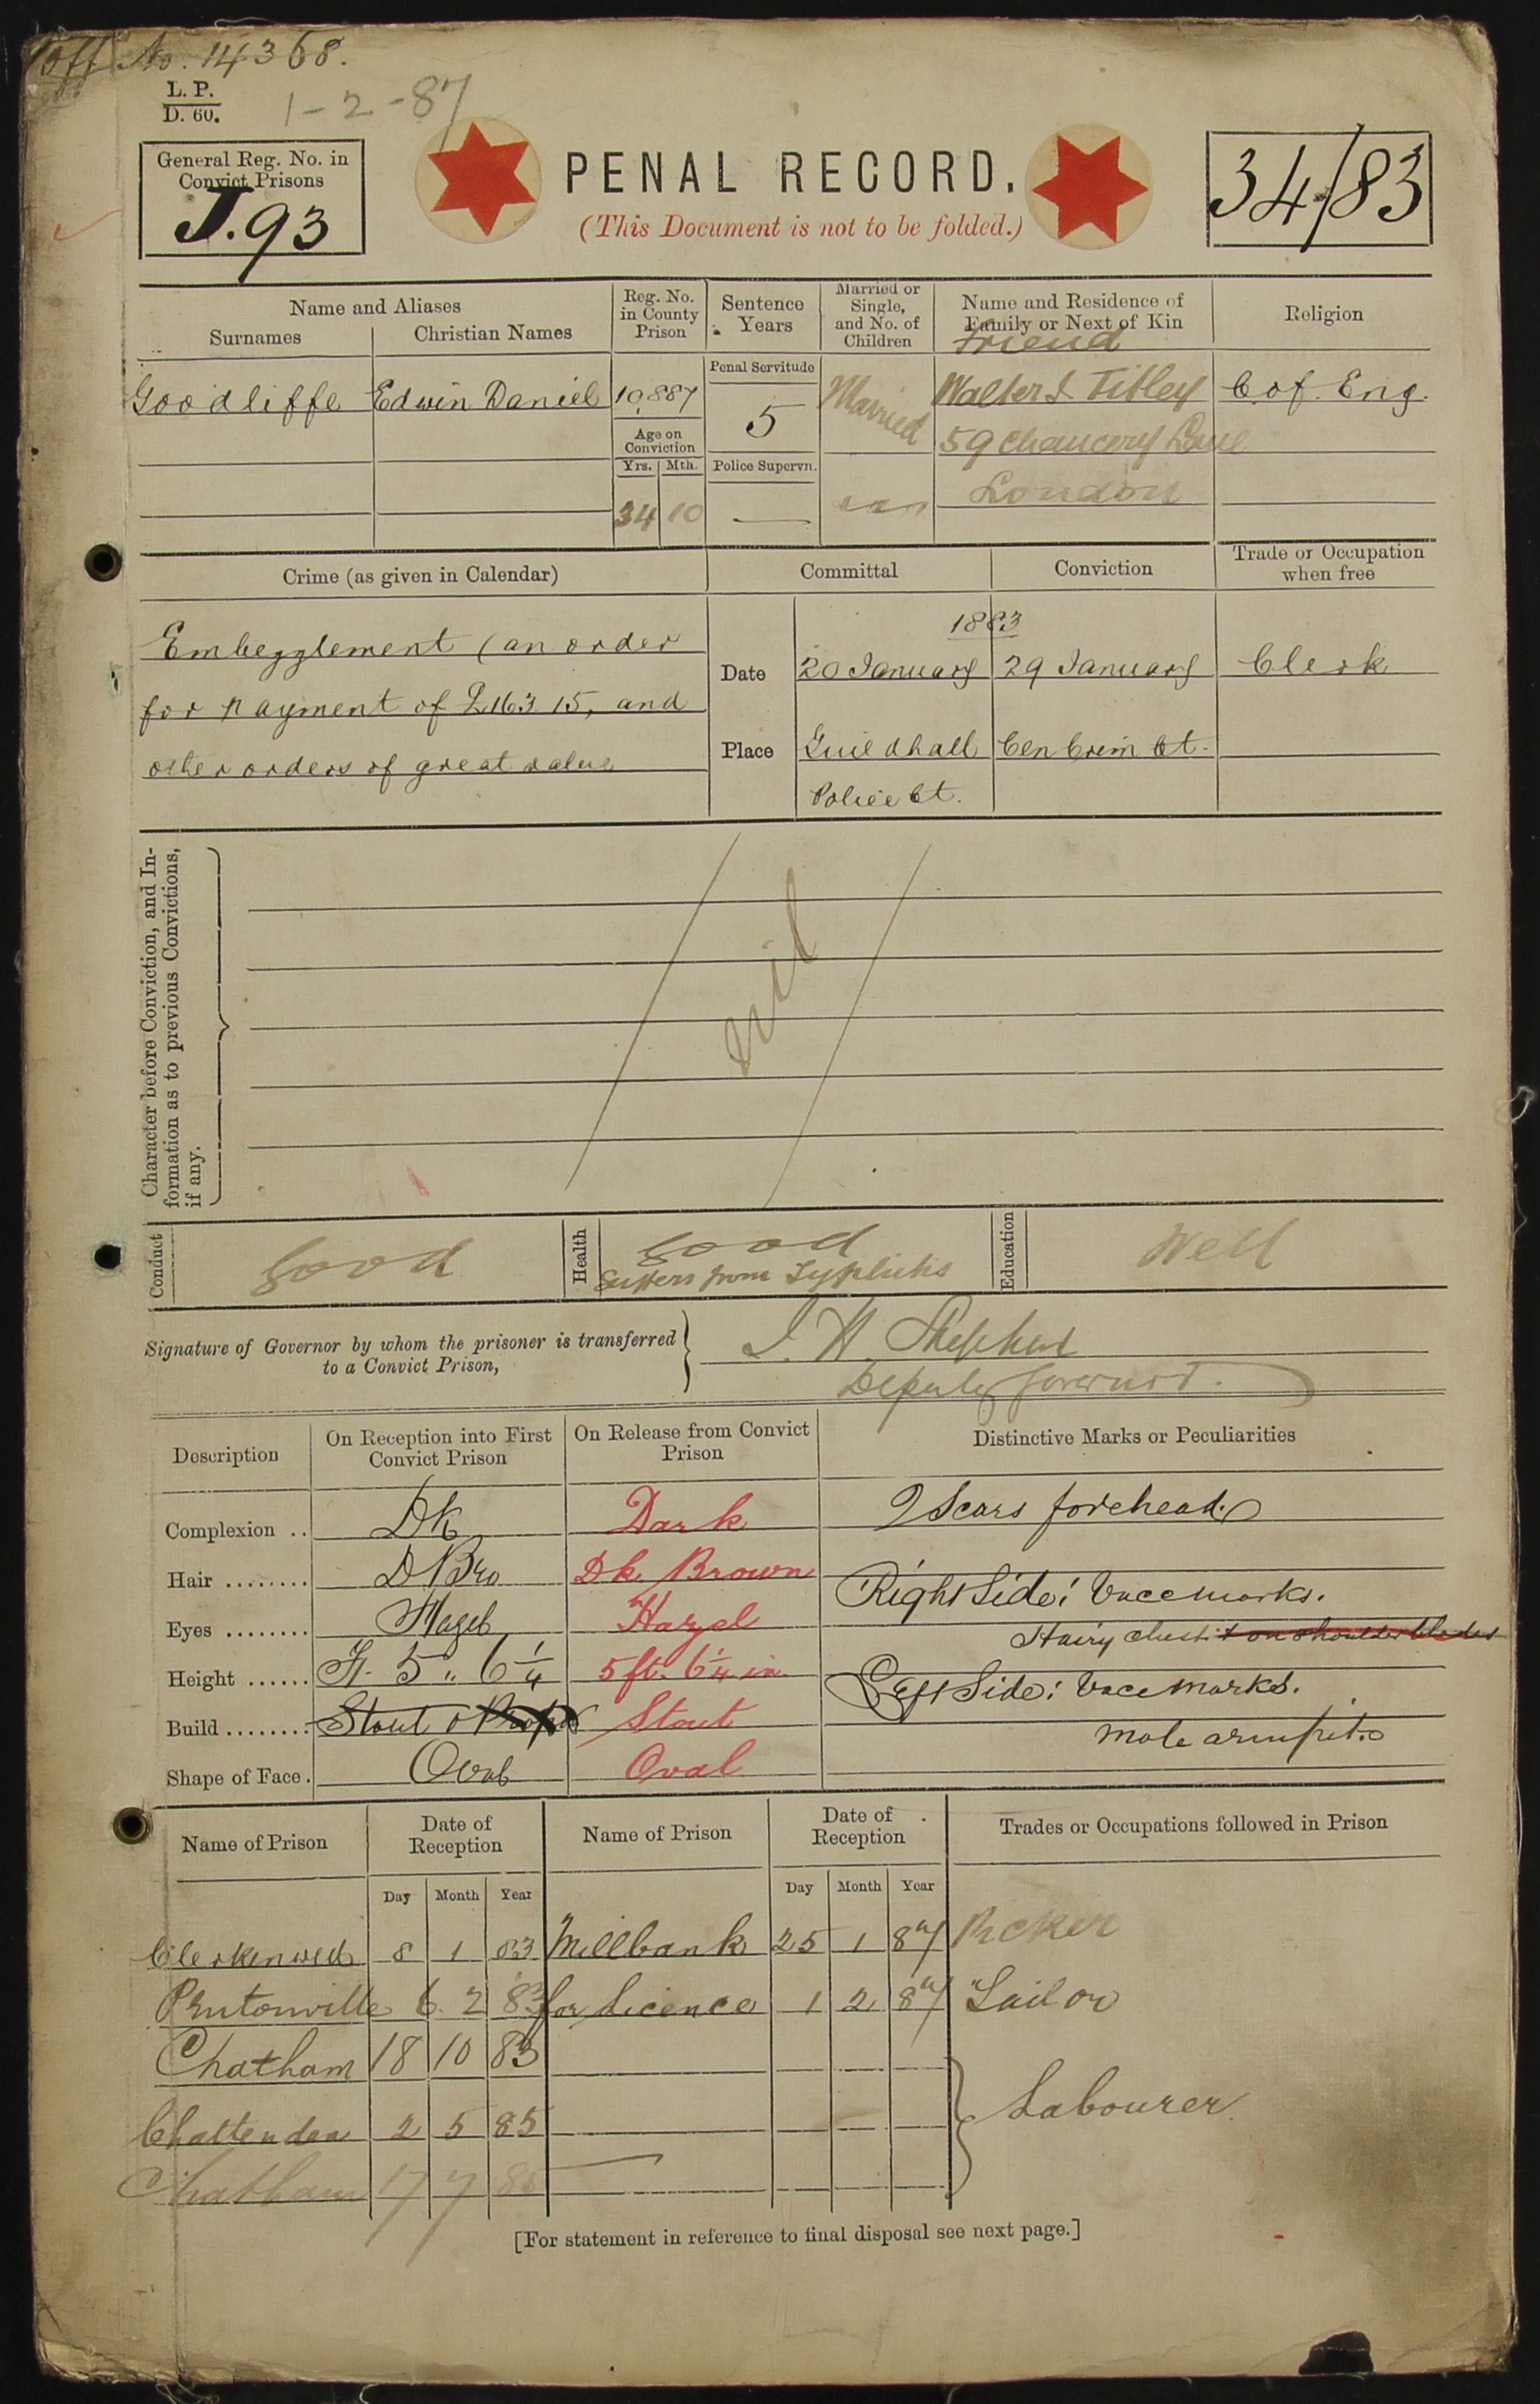 Off No. 14368.
L. P.
D. 60.
1-2-87
General Reg. No. in
Convict Prisons
J.93
PENAL RECORD.
(This Document is not to be folded.)
34/83
Name and Aliases
Surnames
Christian Names
Reg. No.
in County
Prison
Sentence
Years
Married or
Single,
and No. of
Children
Name and Residence of
Family or Next of Kin
Religion
Friend
Goodliffe
Edwin Daniel
10,887
Penal Servitude
5
Married
Walter I. Titley
59 Chancery Lane
London
C of. Eng.
Age on
Conviction
Yrs.
Mth.
34
10
Police Supervn.
Crime (as given in Calendar)
Committal
Conviction
Trade or Occupation
when free
Embezzlement (an order
for payment of £163 15, and
other orders of great value
1883
Date
20 January
29 January
Clerk
Place
Guildhall
Police Ct.
Cen Crim Ct.
Character before Conviction, and In-
formation as to previous Convictions,
if any.
nil
Conduct
Good
Health
Good
Suffers from Syphilis
Education
Well
Signature of Governor by whom the prisoner is transferred
to a Convict Prison,
Deputy Governor.
Description
On Reception into First
Convict Prison
On Release from Convict
Prison
Distinctive Marks or Peculiarities
Complexion ..
Dk
Dark
2 Scars forehead.
Hair ........
D Bro
Dk. Brown
Right Side: Vacc marks.
Eyes ........
Hazel
Hazel
Hairy chest & on shoulder blades
Height ......
Ft. 5 " 6 1/4
5 ft. 6 1/4 in.
Left Side: Vacc marks.
Build ........
Stout
Stout
Mole armpit.
Shape of Face.
Oval
Oval
Name of Prison
Date of
Reception
Name of Prison
Date of
Reception
Trades or Occupations followed in Prison
Day
Month
Year
Day
Month
Year
Clerkenwell 8 1 83
Millbank 25 1 87
Picker
Pentonville 6 2 83
for Licence 1 2 87
Tailor
Chatham 18 10 83
Chattenden 2 5 85
Labourer
Chatham 17 7 85
[For statement in reference to final disposal see next page.]